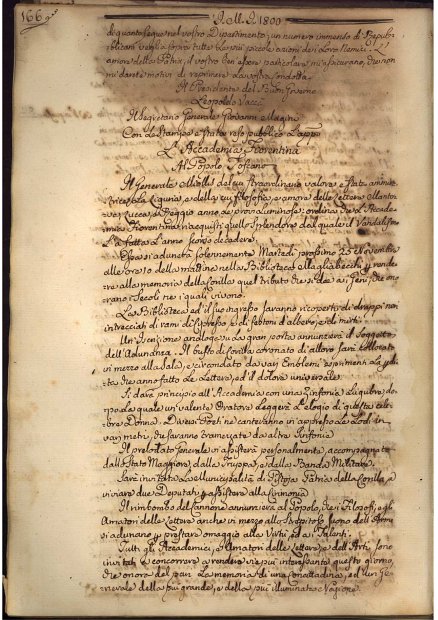 166
A dì ... 1800
di quanto segue nel vostro Dipartimento; un numero immenso di Repub-
blicani veglia sopra tutte le più piccole azioni dei loro Nemici. L'
amore della Patria, il vostro ben essere particolare mi assicurano, che non
mi darete motivi di reprimere la vostra condotta.
Il Presidente del Buon Governo
Leopoldo Vaccà
Il Segretario Generale Giovanni
Con le stampe è stato reso pubblico
L'Accademia Fiorentina
Al Popolo Toscano
Il Generale Miollis del cui straordinario valore è stata ammi-
ratrice la Liguria, e della cui filosofia, e amore delle Lettere Mantova
Lucca, e Reggio anno prove luminose, ordina che l'Accade-
mia Fiorentina riacquisti quello splendore dal quale il Vandalismo
l'à fatta l'anno scorso decadere.
Essa si adunerà solennemente Martedì prossimo 25 Novembre
alle ore 10 della mattina nella Biblioteca Magliabechi, e rende-
rà alla memoria della Corilla quel tributo che si dee ai Genj, che ono-
rano i Secoli nei quali vivono.
La Biblioteca ed il suo ingresso saranno ricoperti di drappi neri
intrecciati di rami di Cipresso, e di festoni d'alberese, e di mirti.
Un'Iscrizione analoga sulla gran porta annunzierà il Soggetto
dell'Adunanza. Il Busto di Corilla coronato di alloro sarà collocato
in mezzo alla Sala, e circondato da vari Emblemi esprimenti la per-
dita che anno fatto le Lettere, ed il dolore universale.
Si darà principio all'Accademia con una Sinfonia lugubre, do-
po la quale un valente Oratore leggerà l'elogio di questa cele-
bre Donna. Diversi Poeti ne canteranno in appresso le Lodi in
vari metri, che saranno tramezzate da altre Sinfonie
Il prelodato Generale vi assisterà personalmente, accompagnato
dallo Stato Maggiore, dalla Truppa, e dalla Banda Militare.
Sarà invitata la Municipalità di Pistoja Patria della Corilla, a
inviare due Deputati ad assistere alla Cerimonia
Il rimbombo del Cannone annunzierà al Popolo, che i Filosofi, e gli
Amatori delle Lettere anche in mezzo allo strepitoso suono dell'Armi
si adunano per prestare omaggio alla Virtù, ed ai Talenti.
Tutti gli Accademici, e Amatori delle Lettere, e dell'Arti, sono
invitati a concorrere a rendere vie più interessante questo giorno,
che onora del pari la memoria di una Concittadina, ed un Ge-
nerale della più grande, e della più illuminata Nazione.